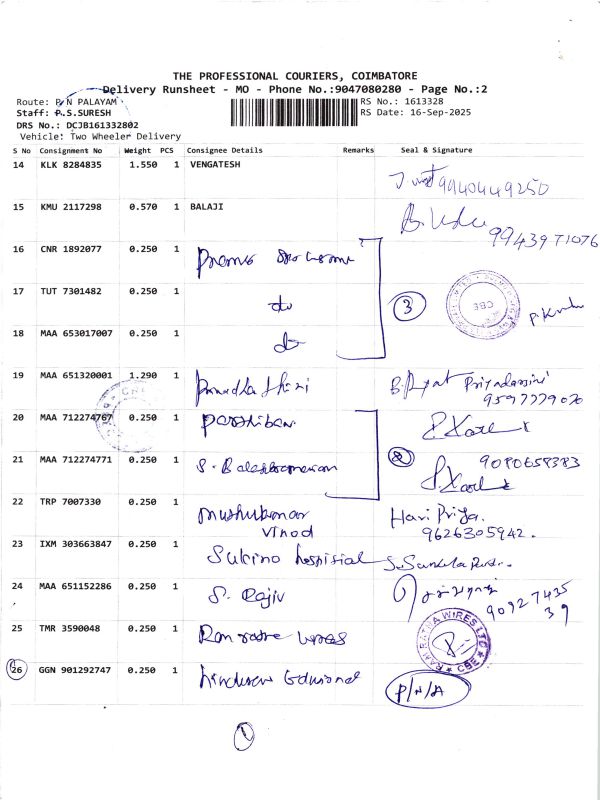 THE PROFESSIONAL COURIERS, COIMBATORE
Delivery Runsheet - MO - Phone No.:9047080280 - Page No.:2
Route: P N PALAYAM
Staff: P.S.SURESH
DRS No.: DCJB161332802
Vehicle: Two Wheeler Delivery
RS No.: 1613328
RS Date: 16-Sep-2025
S No Consignment No Weight PCS Consignee Details Remarks Seal & Signature
14 KLK 8284835 1.550 1 VENGATESH 9940449250
15 KMU 2117298 0.570 1 BALAJI 9943971076
16 CNR 1892077 0.250 1
17 TUT 7301482 0.250 1 do 3 CBE
18 MAA 653017007 0.250 1 do
19 MAA 651320001 1.290 1 Priyadarsini
20 MAA 712274767 0.250 1 Parthiban
21 MAA 712274771 0.250 1 2 9080659383
22 TRP 7007330 0.250 1 Muthukumar Hari Priya.
Vinod 9626305942.
23 IXM 303663847 0.250 1 Sukino hospital
24 MAA 651152286 0.250 1 S. Rajiv 90927435
39
25 TMR 3590048 0.250 1 RAMRATNA WIRES LTD CBE
26 GGN 901292747 0.250 1 P/N/A
1